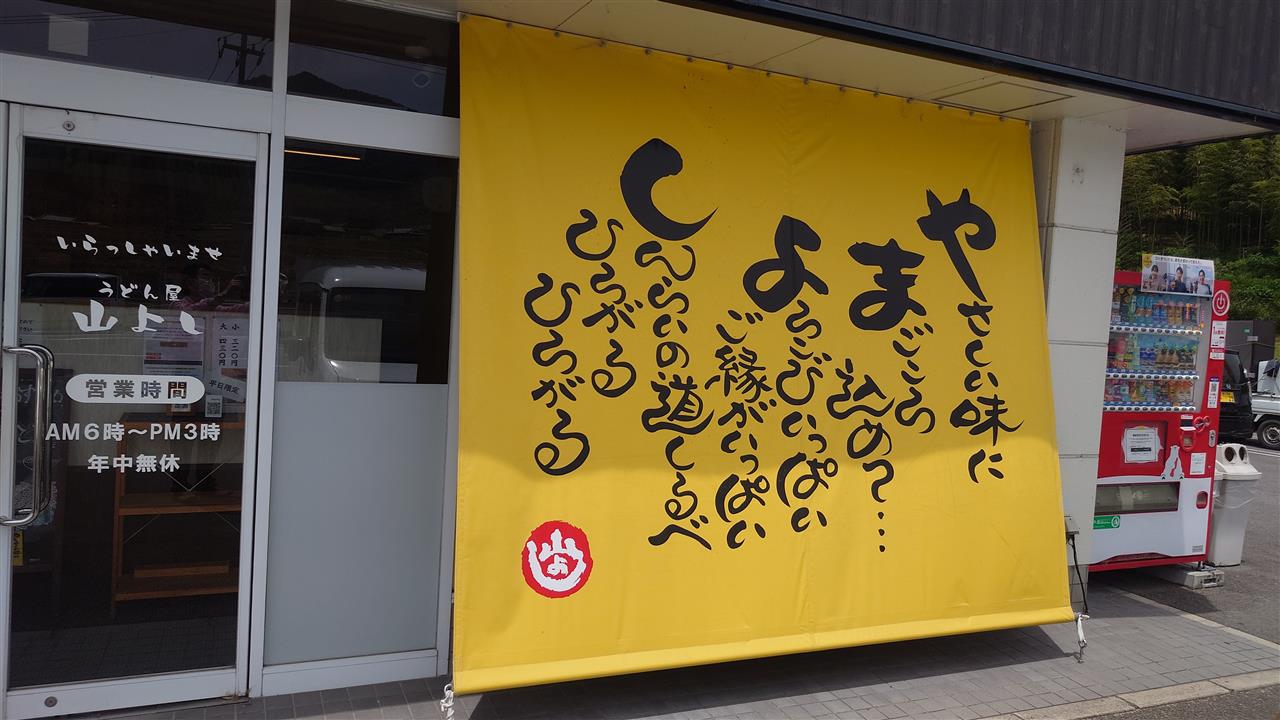 いらっしゃいませ
うどん屋
山よし
営業時間
AM6時〜PM3時
年中無休
大 四三〇円
小 三二〇円
平日限定
やさしい味に
まごころ
込めて…
よろこびいっぱい
ご縁がいっぱい
しんらいの道しるべ
ひろがる
ひろがる
山よし